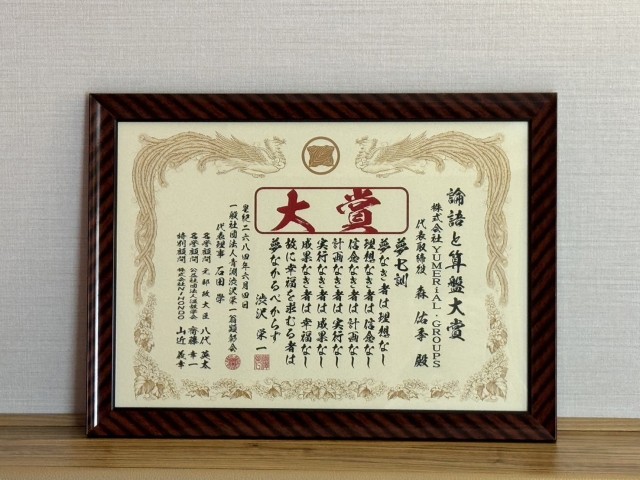 大賞
論語と算盤大賞
株式会社YUMERiAL・GROUPS
代表取締役 森 佑季 殿
夢七訓
夢なき者は理想なし
理想なき者は信念なし
信念なき者は計画なし
計画なき者は実行なし
実行なき者は成果なし
成果なき者は幸福なし
故に幸福を求むる者は
夢なかるべからず
渋沢 栄一
皇紀二六八四年六月四日
一般社団法人青淵渋沢栄一翁顕彰会
代表理事 石田 学
名誉顧問 元郵政大臣 八代 英太
名誉顧問 齋藤 幸一
特別顧問 山近 義幸